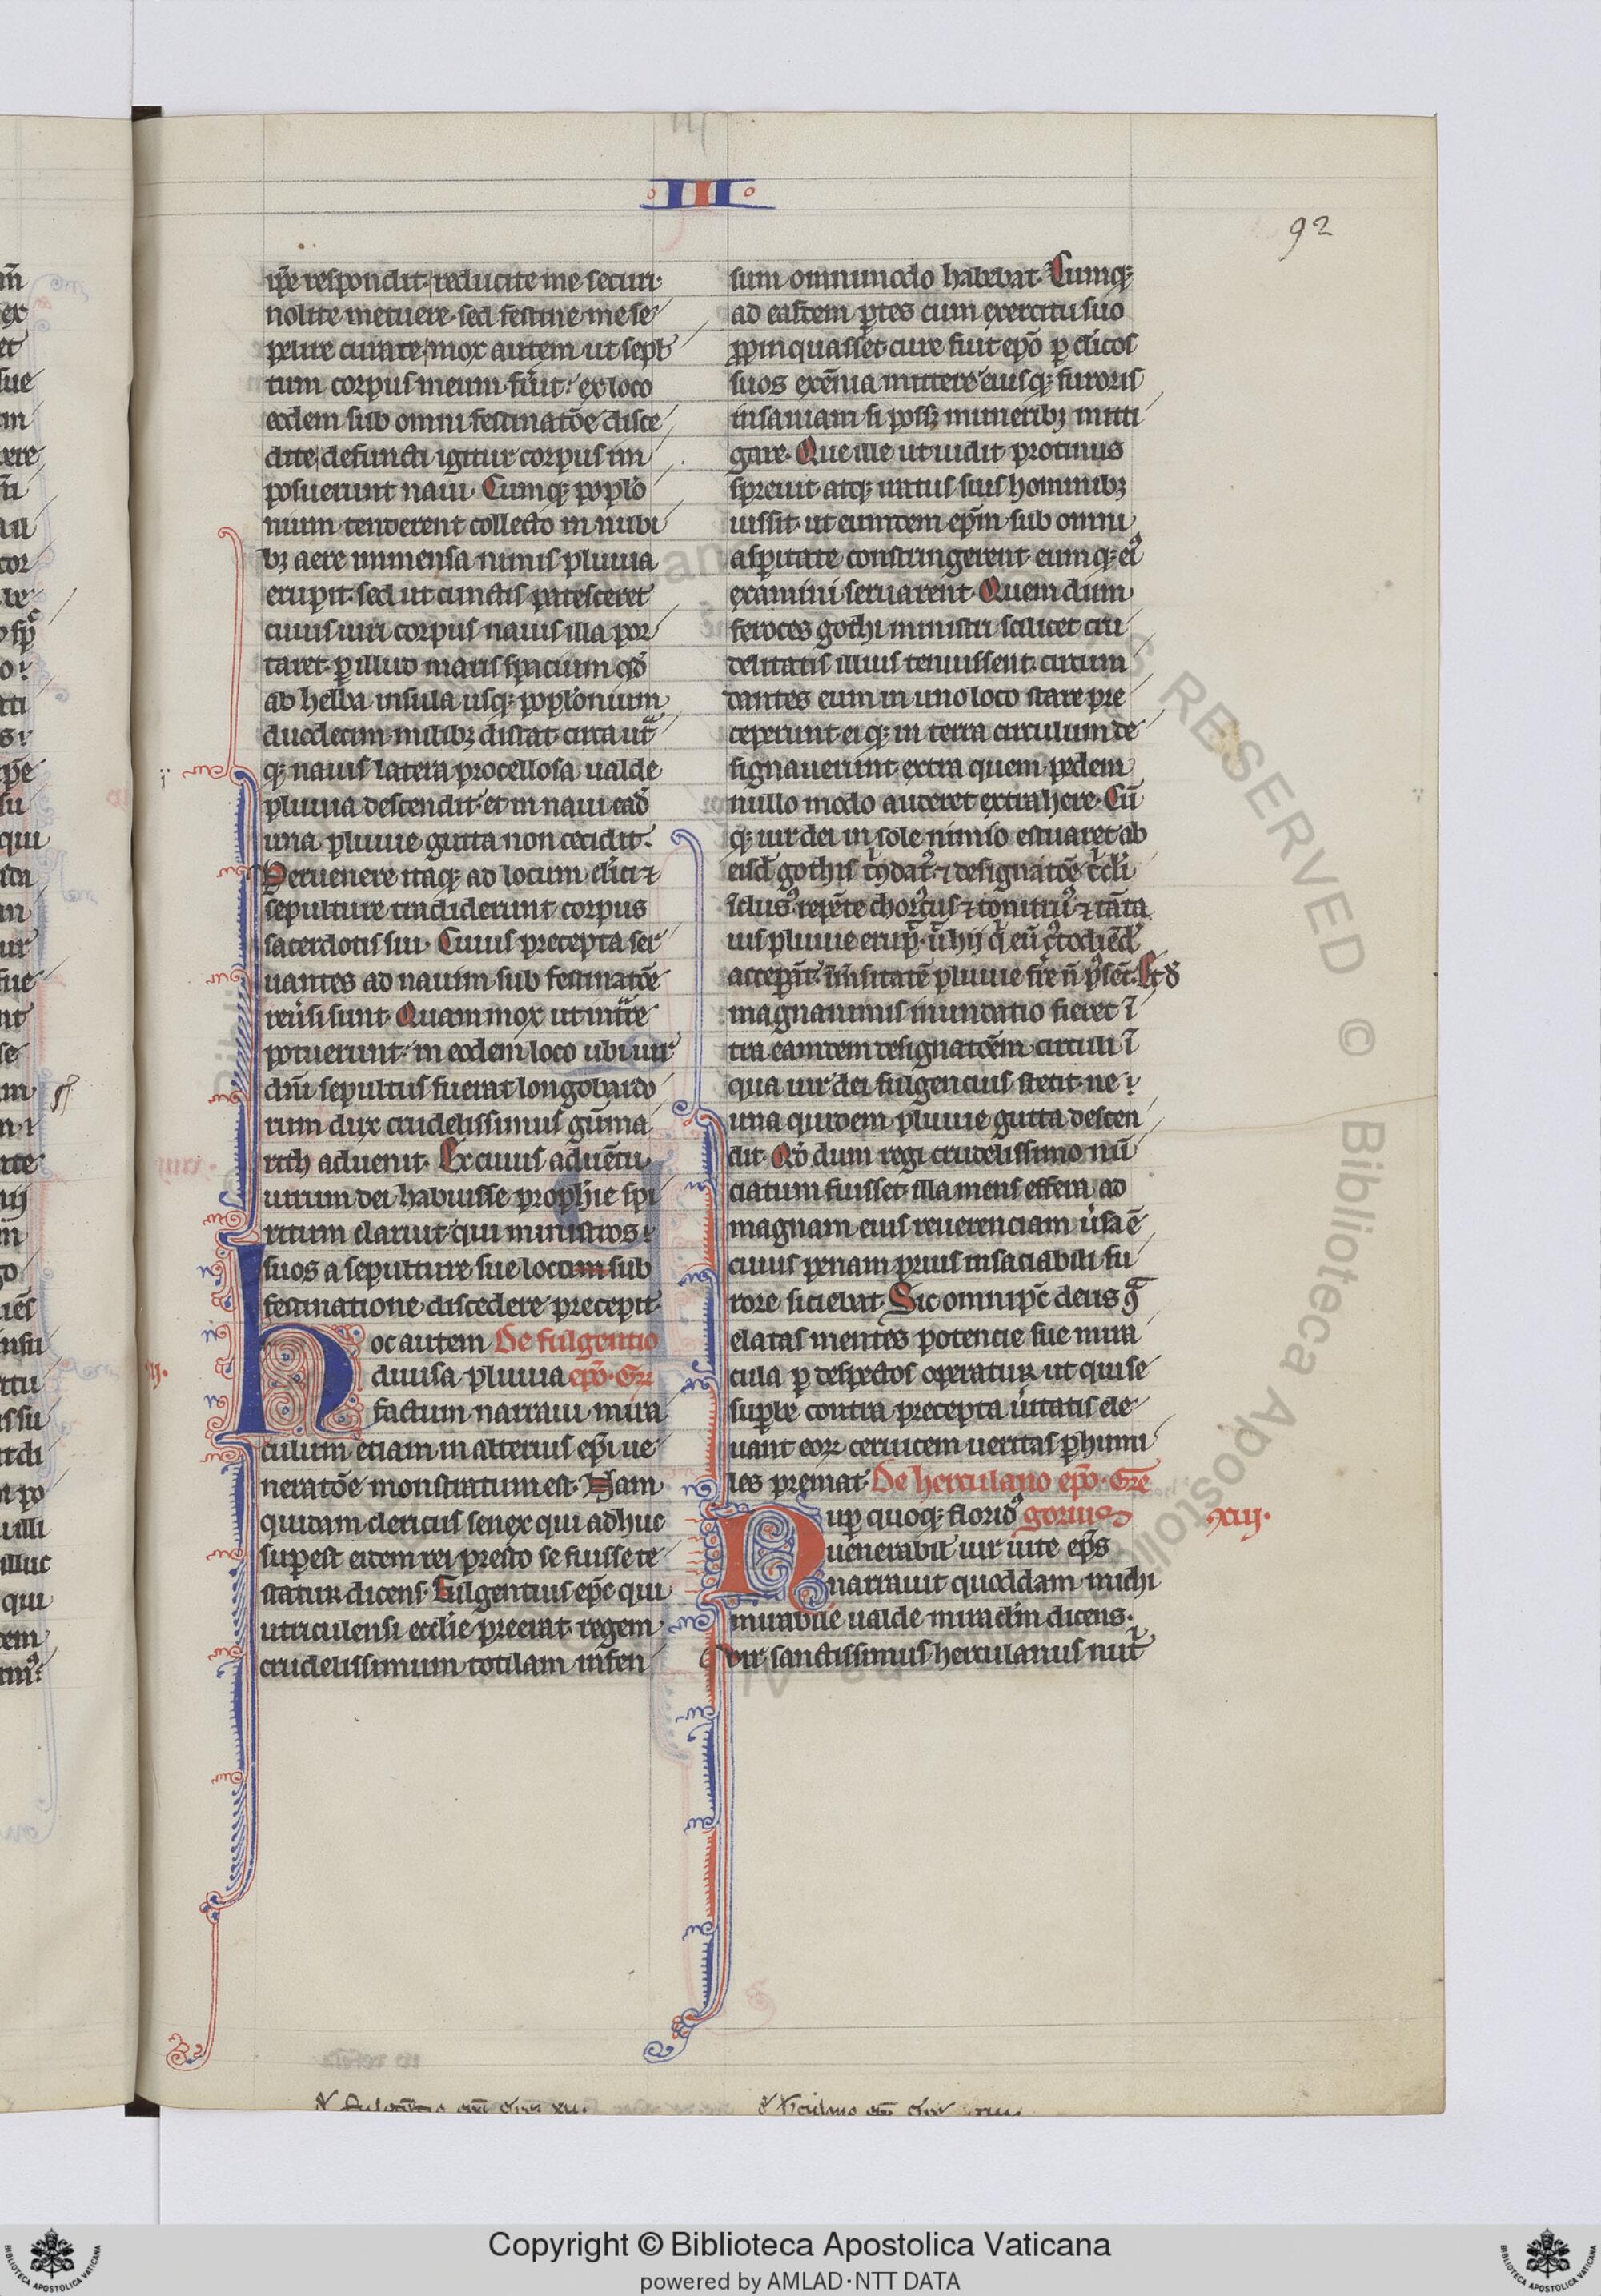 III
92
ip̄e respondit. reducite me securi.
nolite metuere. sed festine me se
pelire curate. mox autem ut sepl̄
tum corpus meum fu̾it. ex loco
eodem sub omni festinatōe disce
dite. defuncti igitur corpus im
posuerunt naui. Cumq; poplo
nium tenderent collecto in nubi
bꝫ aere immensa nimis pluuia
erupit. sed ut cunctis patesceret
cuius uiri corpus nauis illa por
taret. ꝑ illud maris spacium qd̄
ab helba insula usq; poplonium
duodecim milibꝫ distat circa utͣ
q; nauis latera procellosa ualde
pluuia descendit. et in naui ead̄
una pluuie gutta non cecidit.
Peruenere itaq; ad locum cl̾ici ⁊
sepulture tradiderunt corpus
sacerdotis sui. Cuius precepta ser
uantes ad nauim sub festinatōe
reu̾si sunt. Quam mox ut intͣre
potuerunt. in eodem loco ubi uir
dn̄i sepultus fuerat longobardo
rum dux crudelissimus gūma
rith aduenit. Ex cuius aduētu
uirum dei habuisse prophie spi
ritum claruit. qui ministros
suos a sepulture sue locum sub
festinatione discedere precepit.
Hoc autem De fulgentio
diuisa pluuia ep̄o. Gꝛꝫ
factum narraui. mira
culum etiam in alterius ep̄i ue
neratōe monstratum est. Nam
quidam clericus senex qui adhuc
suꝑest eidem rei presto se fuisse te
statur dicens. Fulgentius ep̄c qui
utriculensi eccl̾ie preerat. regem
crudelissimum totilam infen
sum omnimodo habebat. Cumq;
ad easdem ꝑtes cum exercitu suo
ꝓpinquasset cure fuit ep̄o ꝑ cl̾icos
suos exēnia mittere eiusq; furoris
insaniam si possꝫ muneribꝫ miti
gare. Que ille ut uidit protinus
spreuit. atq; iratus suis hominibꝫ
iussit. ut eumdem ep̄m sub omni
asꝑitate constringerent. eumq; ei᾽
examini seruarent. Quem dum
feroces gothi ministri scilicet cru
delitatis illius tenuissent. circum
dantes eum in uno loco stare pre
ceperunt. ei q; in terra circulum de
signauerunt. extra quem pedem
nullo modo auderet extrahere. Cū
q; uir dei in sole nimio estuaret ab
eisd̄ gothis ⁊ designatōe
sclus᾽ repēte choruscus ⁊ tonitru᾽ ⁊ tāta
uis pluuie erup̄. ut hij q eū custodiēd̄
accepāt. īmensitatē pluuie fr̄e n̄ possēt. Et d̾
magna nimis inundatio fieret ī
tra eamdem designatōem circuli ī
qua uir dei fulgencius stetit. ne
una quidem pluuie gutta descen
dit. Qd̄ dum regi crudelissimo nū
ciatum fuisset. illa mens effera ad
magnam eius reuerenciam u̾sa ē
cuius penam prius insaciabili fu
rore siciebat. Sic omnip̄c deus
elatas mentes potencie sue mira
cula ꝑ despectos operatur. ut qui se
suꝑbe contra precepta u̾itatis ele
uant eorꝝ ceruicem ueritas ꝑ humi
les premat. De herculano ep̄o. Gre
Nuꝑ quoq; florid᾽ gorius
uenerabil̾ uir uite ep̄s
narrauit quoddam michi
mirabile ualde miraclm̄ dicens.
vir sanctissimus herculanus nut᾽
xiij.
d̾ fulgētio ep̄o xij.
d̾ h̾culano ep̄o